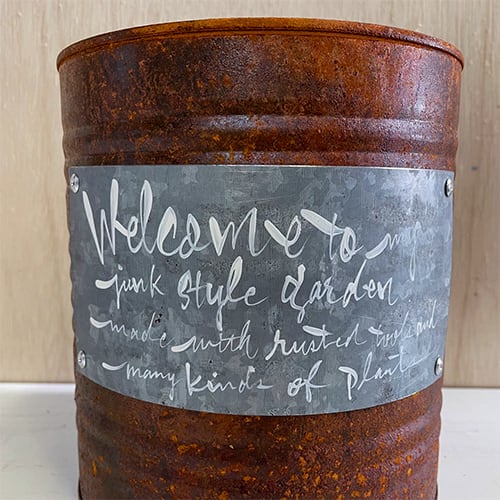 Welcome to my
junk style garden
made with rusted tools and
many kinds of plants